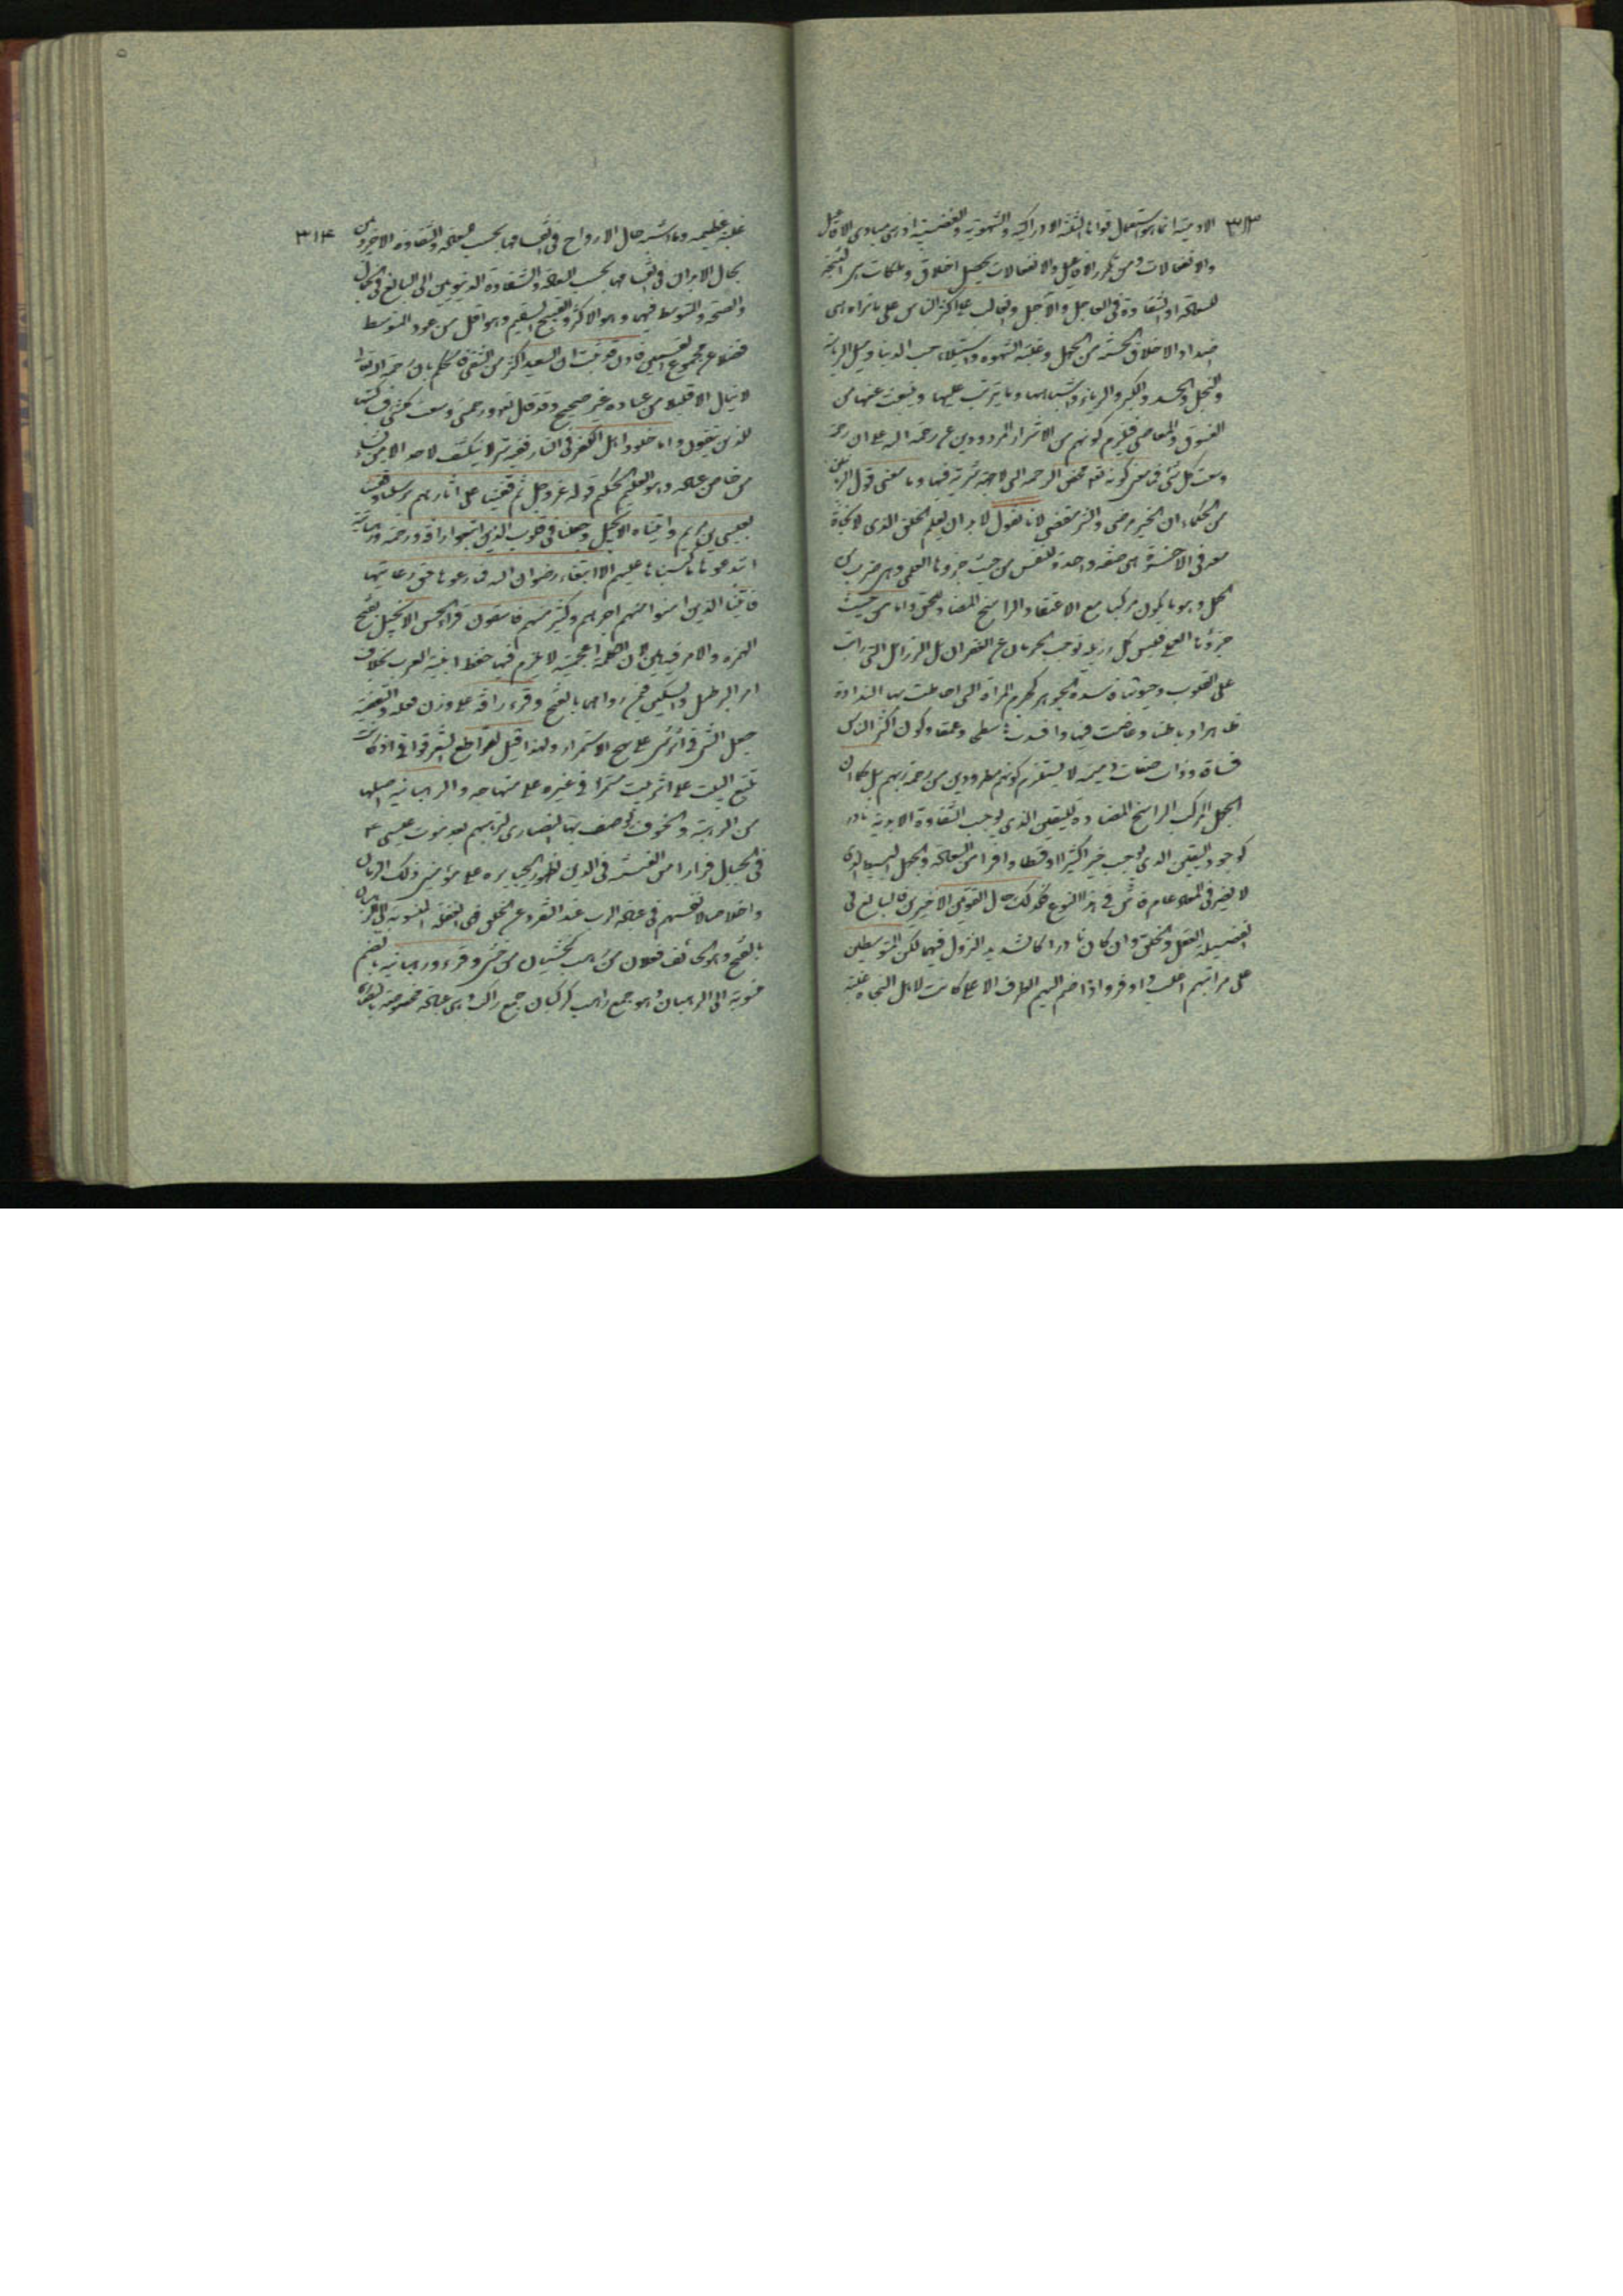 ٣١٣
الادمية انما هو استعمال قواها الثلثة الادراكية والشهوية والغضبية اذ هى مبادى الافاعيل
والانفعالات ومن تكرر الافاعيل والانفعالات يحصل اخلاق وملكات هى النتيجة
للسعادة او الشقاوة فى العاجل والآجل والغالب على اكثر الناس على ما تراه هى
اضداد الاخلاق الحسنة من الجهل وغلبة الشهوة واستيلاء حب الدنيا وميل الرياسة
والبخل والحسد والكبر والرياء واشباهها وما يترتب عليها وينبعث عنها من
الفسوق والمعاصى فيلزم كونهم من الاشرار المردودين عن رحمة الله على ان رحمة
وسعت كل شئ فما معنى كونه تعالى محض الرحمة التى لا جهة شرية فيها وما معنى قول
من الحكماء ان الخير مرضى والشر مقضى لانا نقول لا بد ان يعلم الخلق الذى لا نجاة
معه فى الآخرة هى صفة واحدة للنفس من حيث جزوها العلمى وهى ضرب من
الجهل وهو ما يكون مركبا مع الاعتقاد الراسخ المضاد للحق واما من حيث
جزؤها العملى فليس كل رذيلة توجب الحرمان عن الغفران بل الرذائل التى رانت
على القلوب وجوهها فاسدة الجوهر كجرم المرآة التى احاطت بها النداوة
ظاهرا وباطنا وغاصت فيها وافسدت سطحا وعمقا وكون اكثر الناس
فساق وذوات صفات ذميمة لا يستلزم كونهم مطرودين من رحمة ربهم بل كما ان
الجهل المركب الراسخ المضاد لليقين الذى يوجب الشقاوة الابدية نادر
كوجود اليقين الذى يوجب خيرا كثيرا وقسطا وافرا من السعادة والجهل البسيط الذى
لا يضر فى المعاد عام فاش فى هذا النوع فكذلك حال القوتين الاخيرين فالبالغ فى
الفضيلة العقل والخلق وان كان نادرا كالشديد النزول فيهما لكن المتوسطين
على مراتبهم اغلب واوفر واذا ضم اليهم الطرف الاعلى كانت لاهل النجاة غلبة
٣١٤
غلبة عظيمة وما اشبه حال الارواح فى انقسامها بحسب السعادة والشقاوة الاخرويين
بحال الابدان فى انقسامها بحسب السعادة والشقاوة الدنيويين الى البالغ فى الجمال
والصحة والمتوسط فيهما وهو الاكثر والقبيح السقيم وهو اقل من وجود المتوسط
فضلا عن مجموع القسمين فاذن قد ثبت ان السعيد اكثر من الشقى فالحكم بان رحمة الله تعالى
لا ينال الا قليلا من عباده غير صحيح وقد قال تعالى ورحمتى وسعت كل شئ فساكتبها
للذين يتقون واما خلود اهل الكفر فى النار ففيه سر لا ينكشف لاحد الا من
من خاص عباده وهو العليم الحكيم قوله عز وجل ثم قفينا على آثارهم برسلنا وقفينا
بعيسى بن مريم وآتيناه الانجيل وجعلنا فى قلوب الذين اتبعوه رافة ورحمة ورهبانية
ابتدعوها ما كتبناها عليهم الا ابتغاء رضوان الله فما رعوها حق رعايتها
فآتينا الذين امنوا منهم اجرهم وكثير منهم فاسقون قراء الحسن الانجيل بفتح
الهمزة والامر فيه هين لان الكلمة اعجمية لا يلزم فيها حفظ ابنية العرب بخلاف
امر البرطيل والسكين فيمن رواهما بالفتح وقرء رآفة على وزن فعالة والتقفية
جعل الشئ فى اثر شئ على نهج الاستمرار ولهذا قيل لمقاطع الشعر قوافى اذ كانت
تتبع البيت على اثر بيت مستمرا فى غيره على منهاجه والرهبانية اصلها
من الرهبة والخوف يوصف بها النصارى لترهبهم بعد موت عيسى ع
فى الجبال فرارا من الفتنة فى الدين لظهور الجبابرة على مؤمنى ذلك الزمان
واخلاصا لانفسهم فى عبادة الرب عند التفرد عن الخلق فهى الفعلة المنسوبة الى الرهبان
بالفتح وهو الخائف فعلان من رهب كخشيان من خشى وقرء ورهبانية بالضم
منسوبة الى الرهبان وهو جمع راهب كركبان جمع راكب وهى عبادة مخصوصة بالنصارى